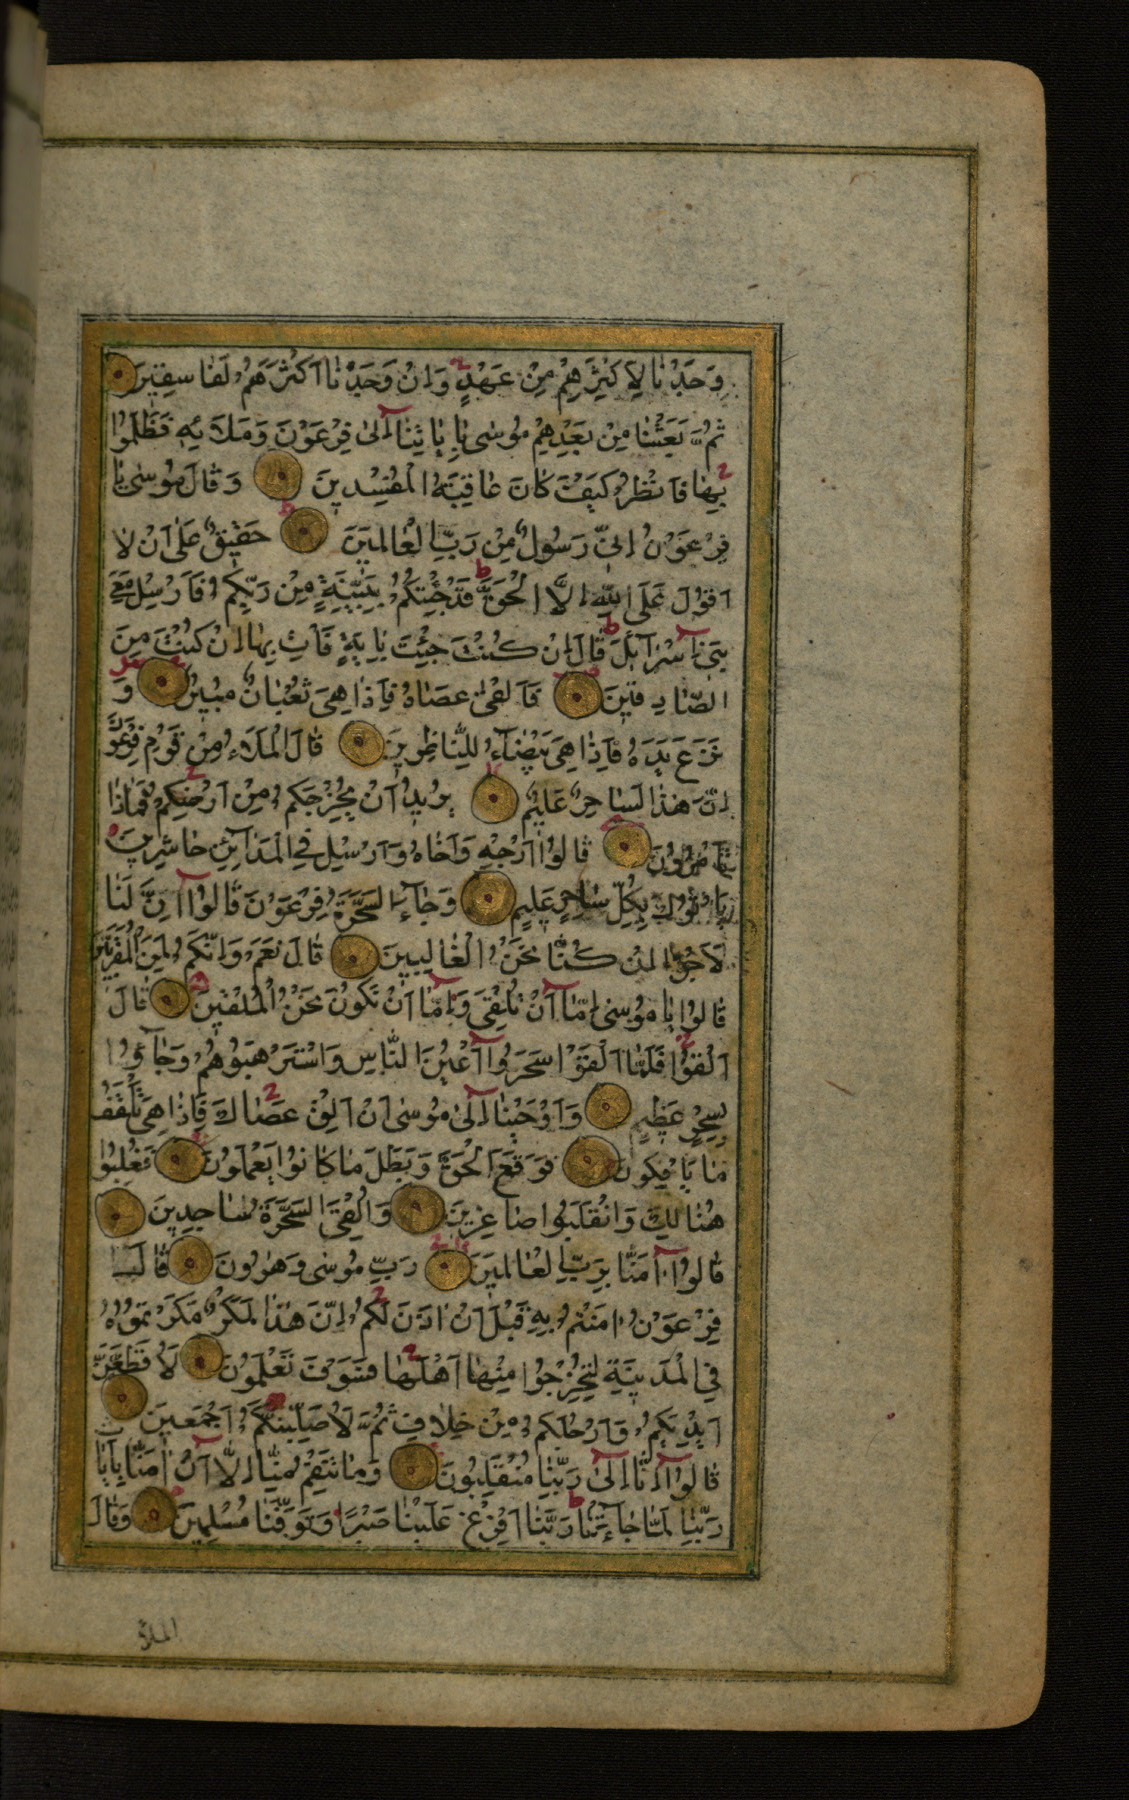 وَجَدْنَا لِاَكْثَرِهِمْ مِنْ عَهْدٍ وَاِنْ وَجَدْنَا اَكْثَرَهُمْ لَفَاسِقِينَ
ثُمَّ بَعَثْنَا مِنْ بَعْدِهِمْ مُوسٰى بِاٰيَاتِنَا اِلٰى فِرْعَوْنَ وَمَلَائِهِ فَظَلَمُوا
بِهَا فَانْظُرْ كَيْفَ كَانَ عَاقِبَةُ الْمُفْسِدِينَ وَقَالَ مُوسٰى يَا
فِرْعَوْنُ اِنِّي رَسُولٌ مِنْ رَبِّ الْعَالَمِينَ حَقِيقٌ عَلٰى اَنْ لَا
اَقُولَ عَلَى اللّٰهِ اِلَّا الْحَقَّ قَدْ جِئْتُكُمْ بِبَيِّنَةٍ مِنْ رَبِّكُمْ فَاَرْسِلْ مَعِيَ
بَنِي اِسْرَائِلَ قَالَ اِنْ كُنْتَ جِئْتَ بِاٰيَةٍ فَأْتِ بِهَا اِنْ كُنْتَ مِنَ
الصَّادِقِينَ فَاَلْقٰى عَصَاهُ فَاِذَا هِيَ ثُعْبَانٌ مُبِينٌ وَ
نَزَعَ يَدَهُ فَاِذَا هِيَ بَيْضَاءُ لِلنَّاظِرِينَ قَالَ الْمَلَاُ مِنْ قَوْمِ فِرْعَوْ
اِنَّ هٰذَا لَسَاحِرٌ عَلِيمٌ يُرِيدُ اَنْ يُخْرِجَكُمْ مِنْ اَرْضِكُمْ فَمَاذَا
تَأْمُرُونَ قَالُوا اَرْجِهِ وَاَخَاهُ وَاَرْسِلْ فِي الْمَدَائِنِ حَاشِرِينَ
يَأْتُوكَ بِكُلِّ سَاحِرٍ عَلِيمٍ وَجَاءَ السَّحَرَةُ فِرْعَوْنَ قَالُوا اِنَّ لَنَا
لَاَجْرًا اِنْ كُنَّا نَحْنُ الْغَالِبِينَ قَالَ نَعَمْ وَاِنَّكُمْ لَمِنَ الْمُقَرَّبِينَ
قَالُوا يَا مُوسٰى اِمَّا اَنْ تُلْقِيَ وَاِمَّا اَنْ نَكُونَ نَحْنُ الْمُلْقِينَ قَالَ
اَلْقُوا فَلَمَّا اَلْقَوْا سَحَرُوا اَعْيُنَ النَّاسِ وَاسْتَرْهَبُوهُمْ وَجَاؤُوا
بِسِحْرٍ عَظِيمٍ وَاَوْحَيْنَا اِلٰى مُوسٰى اَنْ اَلْقِ عَصَاكَ فَاِذَا هِيَ تَلْقَفُ
مَا يَأْفِكُونَ فَوَقَعَ الْحَقُّ وَبَطَلَ مَا كَانُوا يَعْمَلُونَ فَغُلِبُوا
هُنَالِكَ وَانْقَلَبُوا صَاغِرِينَ وَاُلْقِيَ السَّحَرَةُ سَاجِدِينَ
قَالُوا اٰمَنَّا بِرَبِّ الْعَالَمِينَ رَبِّ مُوسٰى وَهٰرُونَ قَالَ
فِرْعَوْنُ اٰمَنْتُمْ بِهِ قَبْلَ اَنْ اٰذَنَ لَكُمْ اِنَّ هٰذَا لَمَكْرٌ مَكَرْتُمُوهُ
فِي الْمَدِينَةِ لِتُخْرِجُوا مِنْهَا اَهْلَهَا فَسَوْفَ تَعْلَمُونَ لَاُقَطِّعَنَّ
اَيْدِيَكُمْ وَاَرْجُلَكُمْ مِنْ خِلَافٍ ثُمَّ لَاُصَلِّبَنَّكُمْ اَجْمَعِينَ
قَالُوا اِنَّا اِلٰى رَبِّنَا مُنْقَلِبُونَ وَمَا تَنْقِمُ مِنَّا اِلَّا اَنْ اٰمَنَّا بِاٰيَاتِ
رَبِّنَا لَمَّا جَاءَتْنَا رَبَّنَا اَفْرِغْ عَلَيْنَا صَبْرًا وَتَوَفَّنَا مُسْلِمِينَ وَقَالَ
الملأ